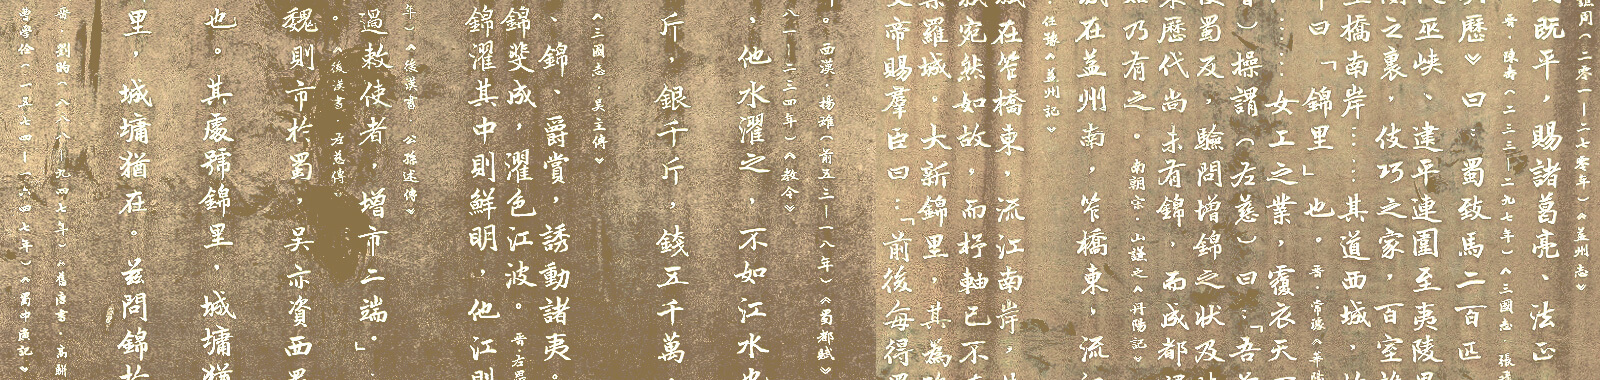 譙周（二零一—二七零年）《益州志》
既平，賜諸葛亮、法正
晉·陳壽（二三三—二九七年）《三國志·張
歷》曰：蜀致馬二百匹
巫峽、建平連圍至夷陵
之裏，伎巧之家，百室
橋南岸……其道西城，
曰「錦里」也。晉·常璩《華陽
……女工之業，覆衣天
）操謂（左慈）曰：「吾
蜀反，驗問增錦之狀及
歷代尚未有錦，而成都
乃有之。南朝宋·山謙之《丹陽記》
在益州南，笮橋東，流
任豫《益州記》
城在笮橋東，流江南岸，
宛然如故，而杼軸已不
羅城。大新錦里，其為
文帝賜羣臣曰：「前後每得
年。西漢·楊雄（前五三—一八年）《蜀都賦》
八一—二三四年）《教令》
，他水濯之，不如江水也
斤，銀千斤，錢五千萬，
《三國志·吳主傳》
、錦、爵賞，誘動諸夷。
錦斐成，濯色江波。晉·左思
錦濯其中則鮮明，他江則
年）《後漢書·公孫述傳》
過敕使者，增市二端。」
。《後漢書·左慈傳》
魏則市於蜀，吳亦資西蜀
也。其處號錦里，城墉猶
里，城墉猶在。茲問錦於
晉·劉昫（八八八—九四七年）《舊唐書·高駢
曹學佺（一五七四—一六四七年）《蜀中廣記》